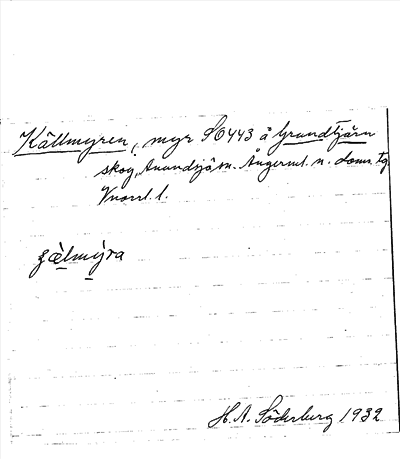 Källmyren, myr SO443 å Grundtjärn
skog, Anundsjö sn. Ångerml. n. doms. tg
Vnorrl. l.
gælmýra
H. A. Söderberg 1932